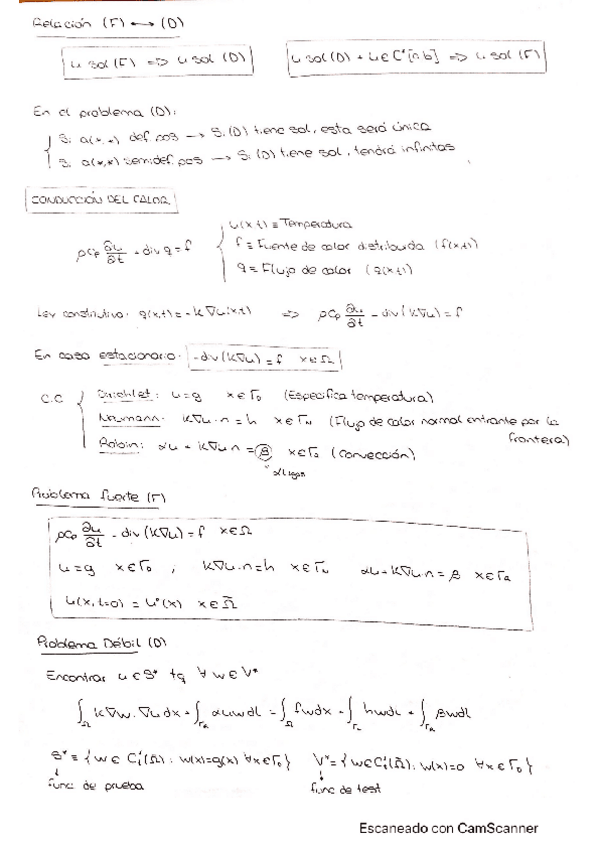 Relación (F) ⟷ (D)
u sol (F) ⟹ u sol (D)    u sol (D) + u ∈ C²[a,b] ⟹ u sol (F)
En el problema (D):
Si a(*,*) def. pos → Si (D) tiene sol, esta será única
Si a(*,*) semidef. pos → Si (D) tiene sol, tendrá infinitas
CONDUCCIÓN DEL CALOR
u(x,t) ≡ Temperatura
ρCp ∂u/∂t + div q = f    f ≡ Fuente de calor distribuida (f(x,t))
q ≡ Flujo de calor (q(x,t))
Ley constitutiva: q(x,t) = -k∇u(x,t) ⟹ ρCp ∂u/∂t - div(k∇u) = f
En caso estacionario: -div(k∇u) = f x∈Ω
C.C Dirichlet: u = g x∈Γ_D (Especifica temperatura)
Neumann: k∇u·n = h x∈Γ_N (Flujo de calor normal entrante por la
frontera)
Robin: αu + k∇u·n = β x∈Γ_R (convección)
Problema fuerte (F)
ρCp ∂u/∂t - div(k∇u) = f x∈Ω
u = g x∈Γ_D , k∇u·n = h x∈Γ_N αu + k∇u·n = β x∈Γ_R
u(x,t=0) = u⁰(x) x∈Ω̄
Problema Débil (D)
Encontrar u∈S* tq ∀w∈V*
∫_Ω k∇w·∇u dx + ∫_Γ_R αuw dl = ∫_Ω fw dx + ∫_Γ_N hw dl + ∫_Γ_R βw dl
S* = {w∈C¹(Ω̄): w(x)=g(x) ∀x∈Γ_D}    V* = {w∈C¹(Ω̄): w(x)=0 ∀x∈Γ_D}
↓    ↓
func de prueba    func de test
Escaneado con CamScanner